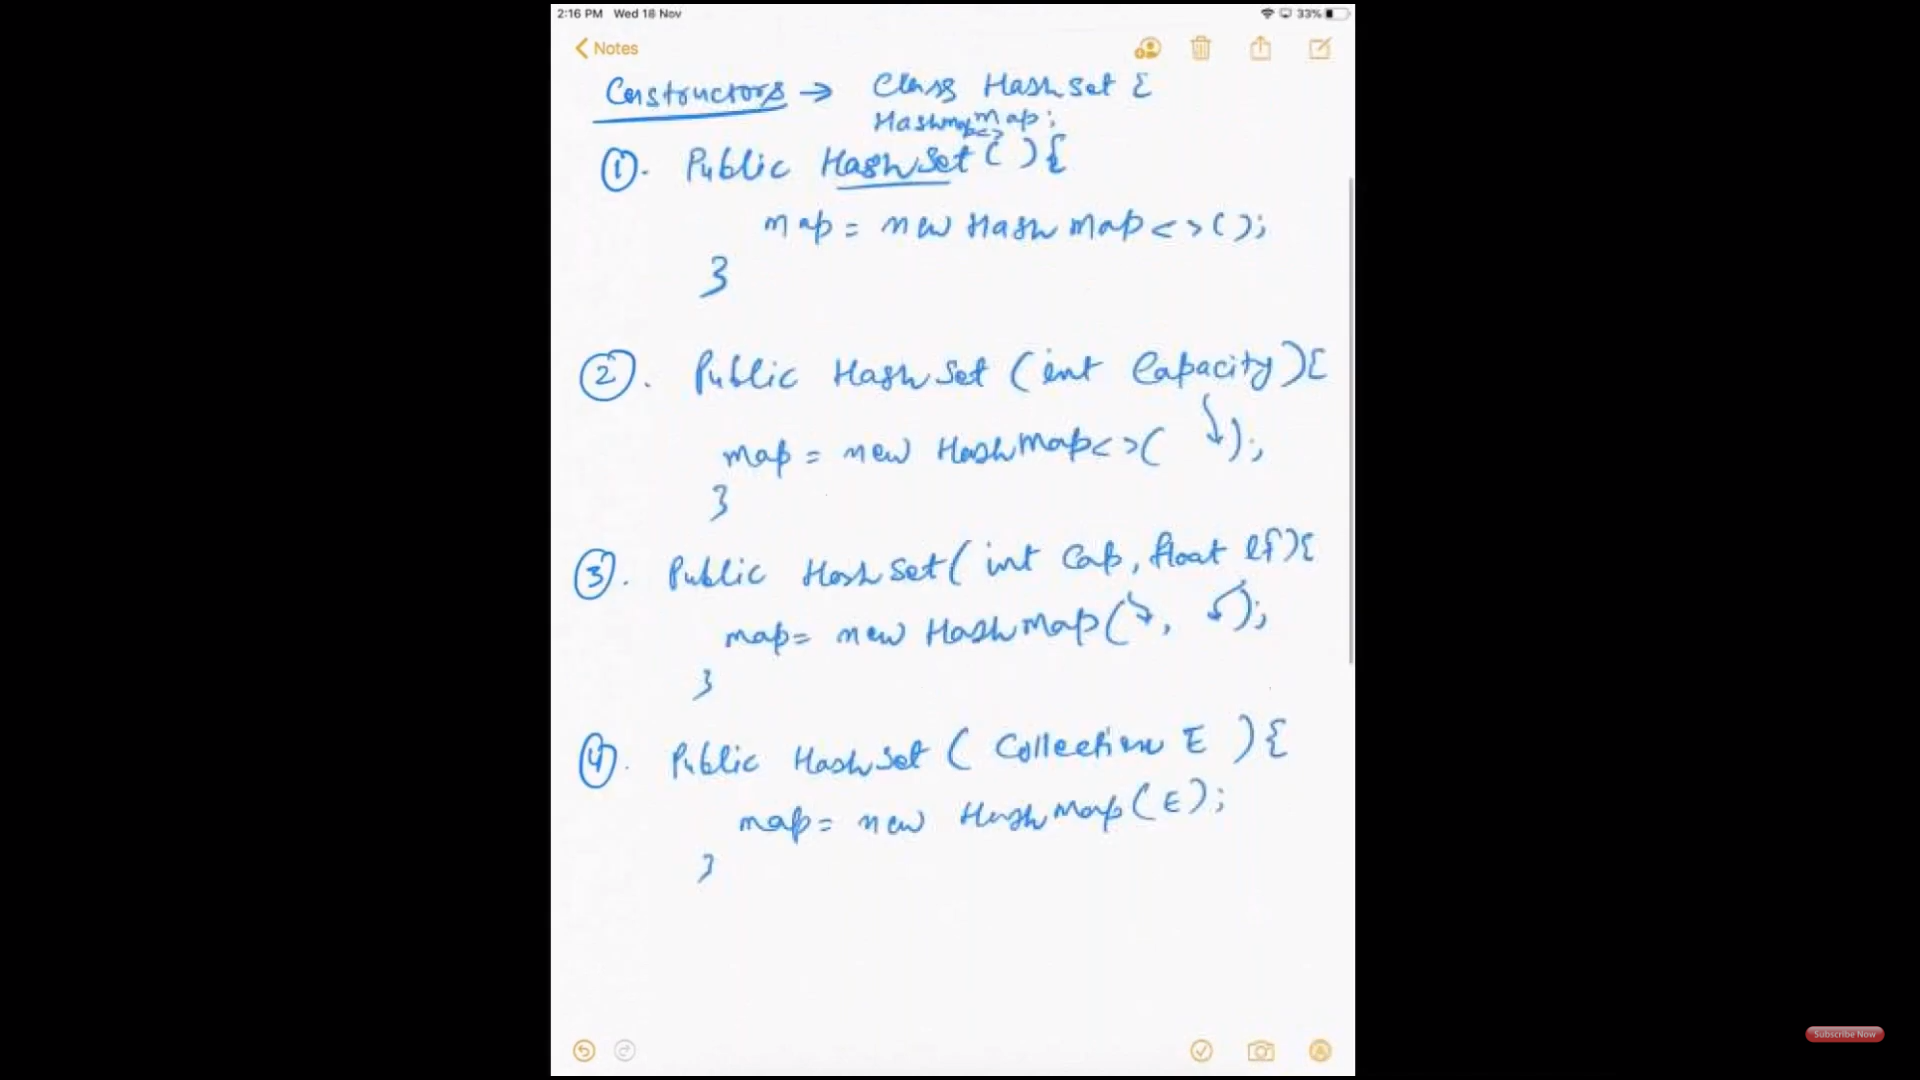 2:16 PM Wed 18 Nov 33%
Notes
Constructors → Class HashSet {
Hashmap<> map;
①. Public HashSet( ){
map = new HashMap<>();
}
②. Public HashSet (int Capacity){
map = new HashMap<>( );
}
③. Public HashSet( int Cap, float lf){
map= new HashMap( , );
}
④. Public HashSet ( Collection E ){
map= new HashMap(E);
}
Subscribe Now